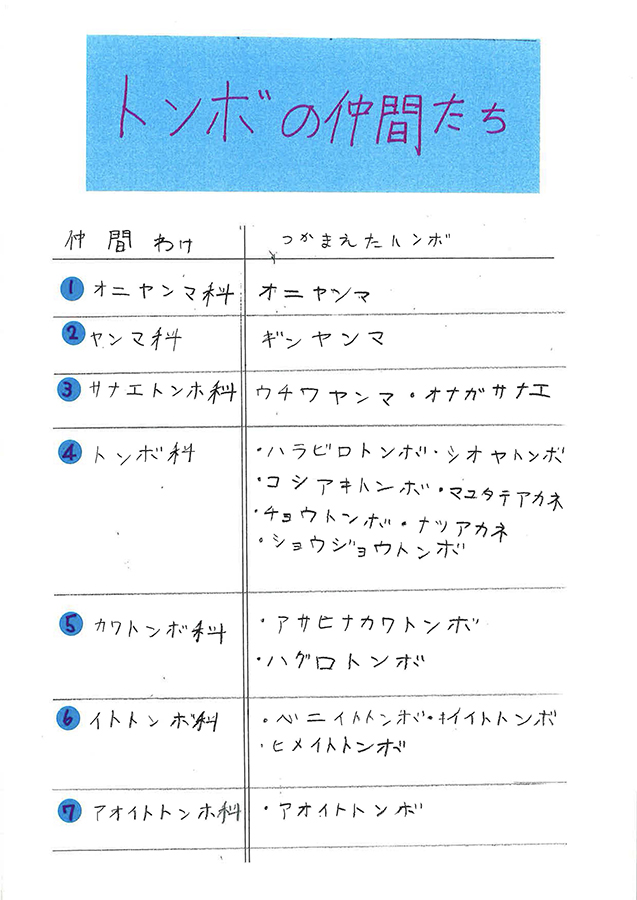 トンボの仲間たち
仲間わけ つかまえたトンボ
1 オニヤンマ科 オニヤンマ
2 ヤンマ科 ギンヤンマ
3 サナエトンホ科 ウチワヤンマ・オナガサナエ
4 トンボ科 ・ハラビロトンボ・シオヤトンボ
・コシアキトンボ・マユタテアカネ
・チョウトンボ・ナツアカネ
・ショウジョウトンボ
5 カワトンボ科 ・アサヒナカワトンボ
・ハグロトンボ
6 イトトンボ科 ・ベニイトトンボ・キイイトトンボ
・ヒメイトトンボ
7 アオイトトンホ科 ・アオイトトンボ